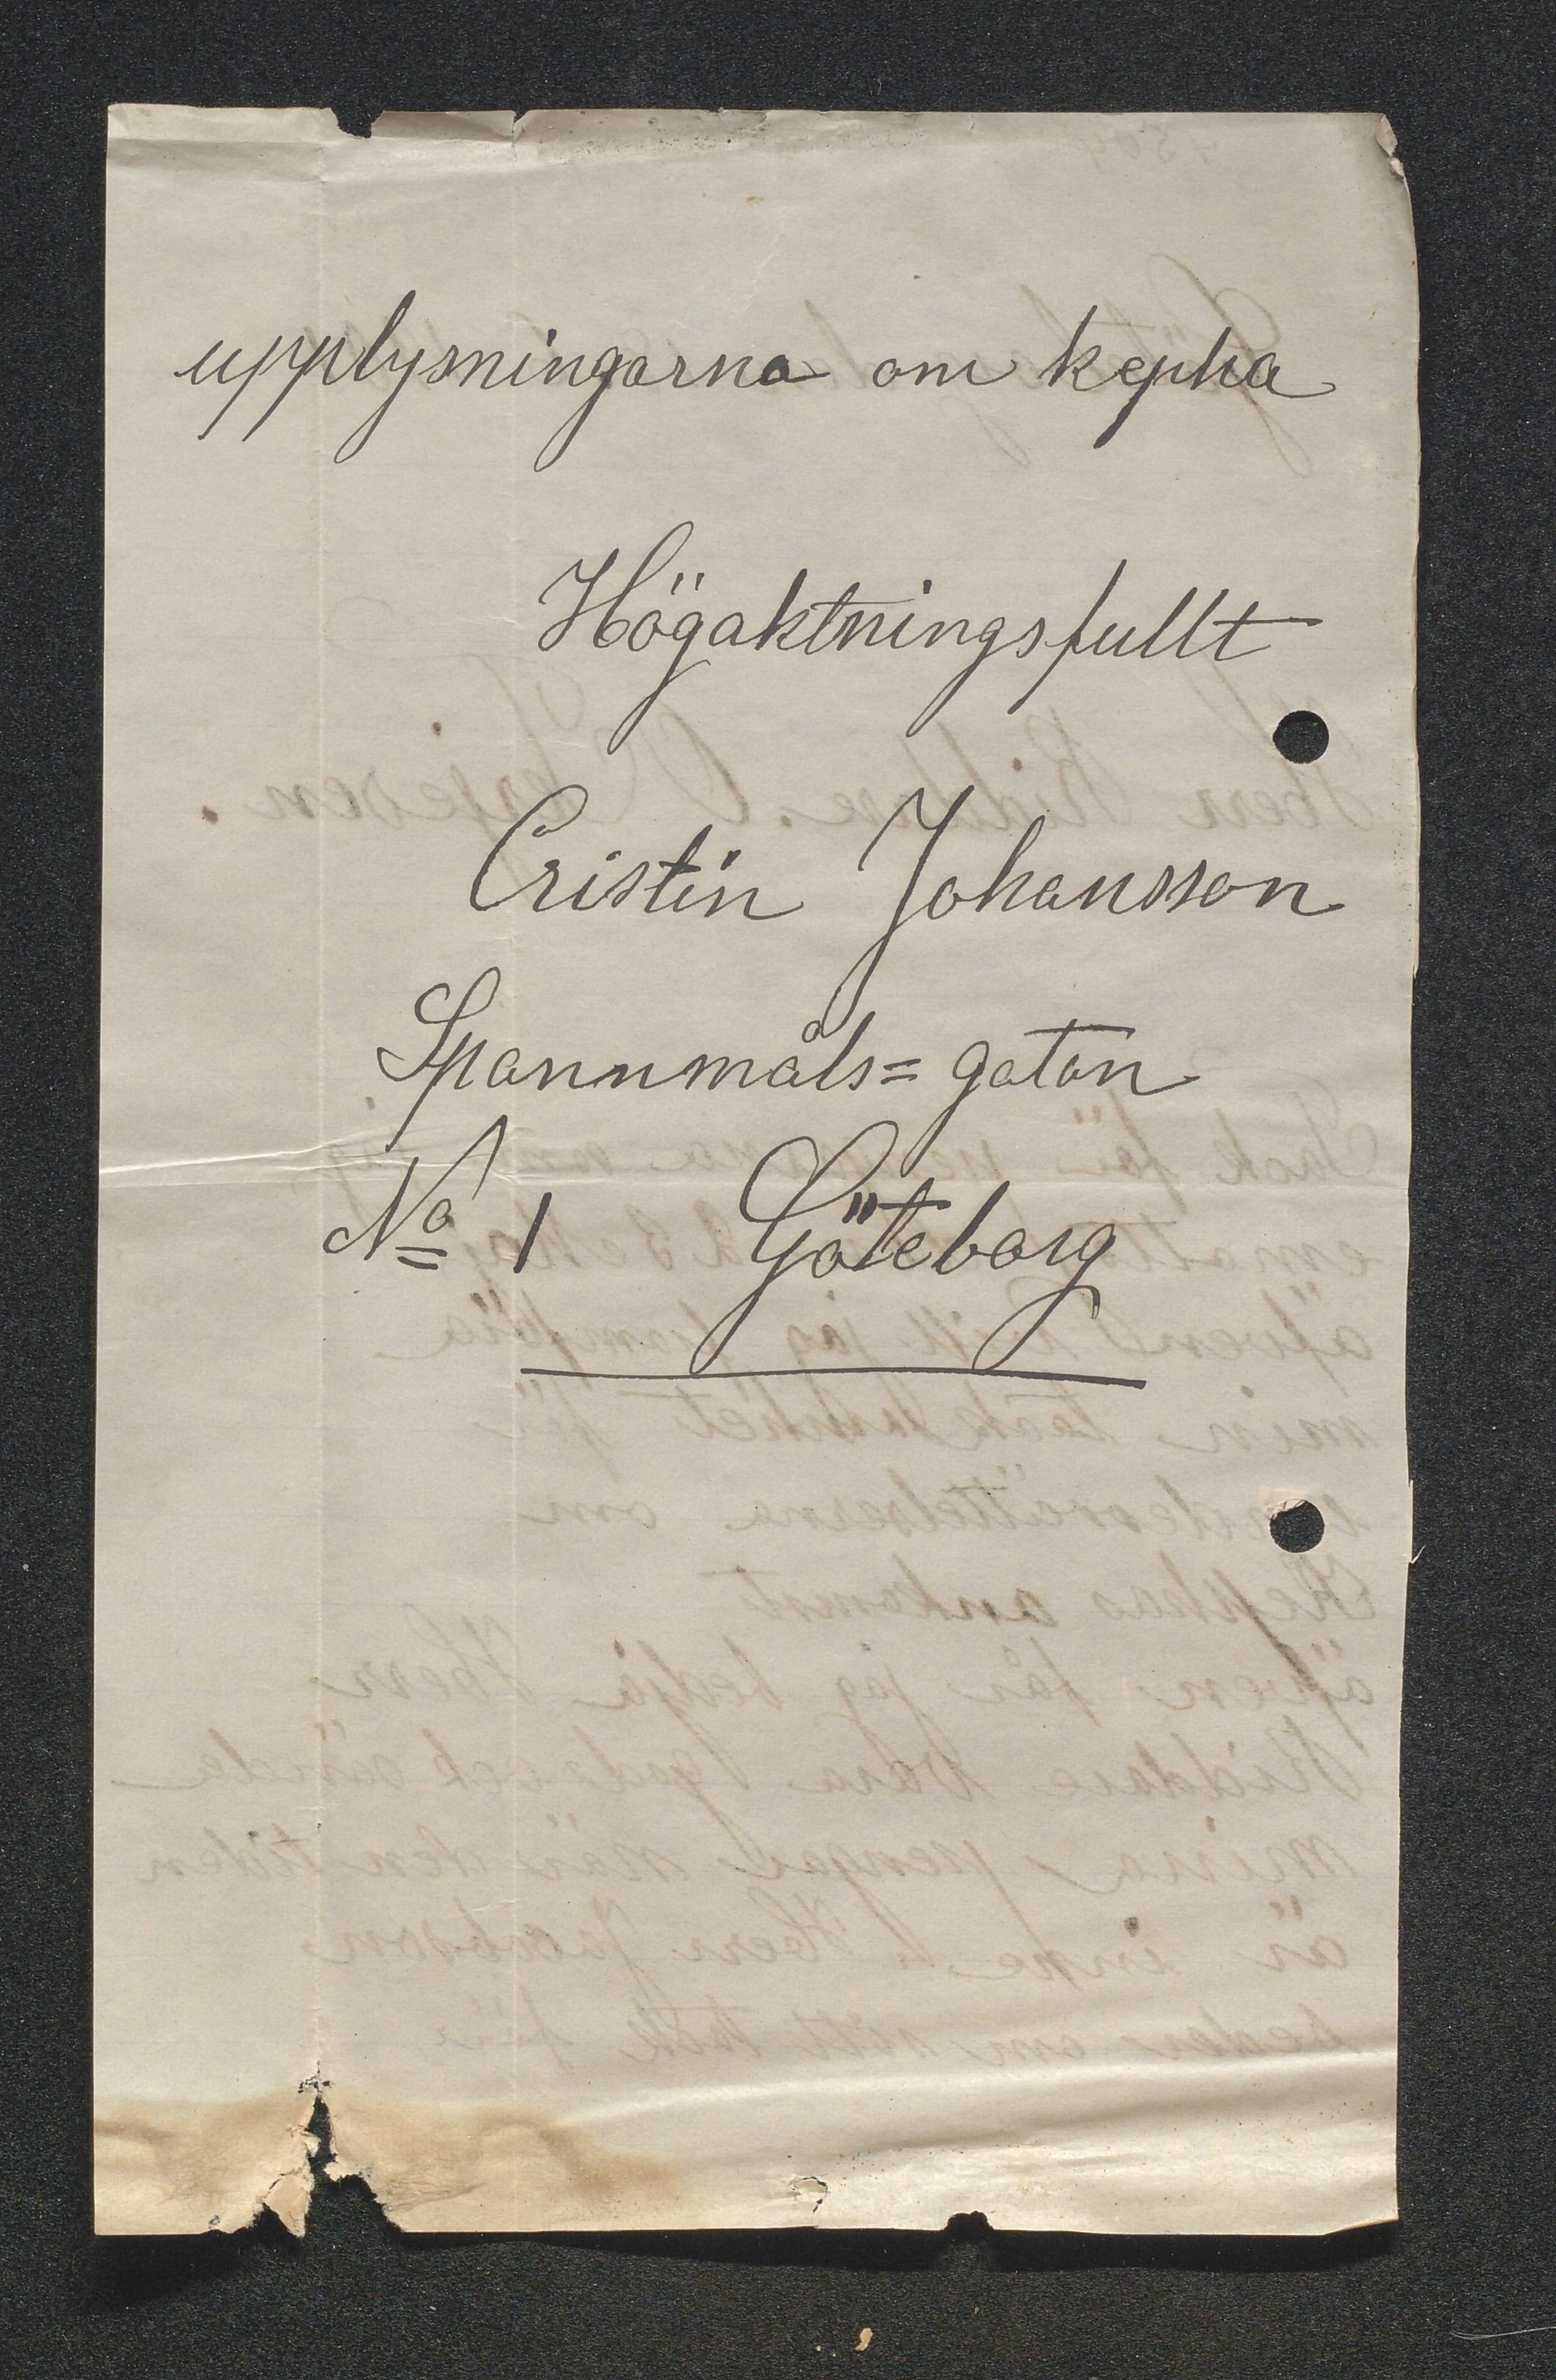 upplysningarna om kepha
Högaktningsfullt
Cristin Johansson
Spannmåls= gatan
No 1 Göteborg